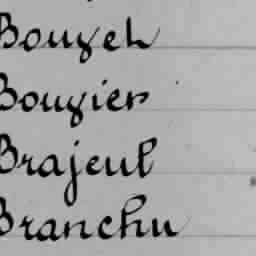 Bouzeh
Bouzier
Brajeul
Branchu